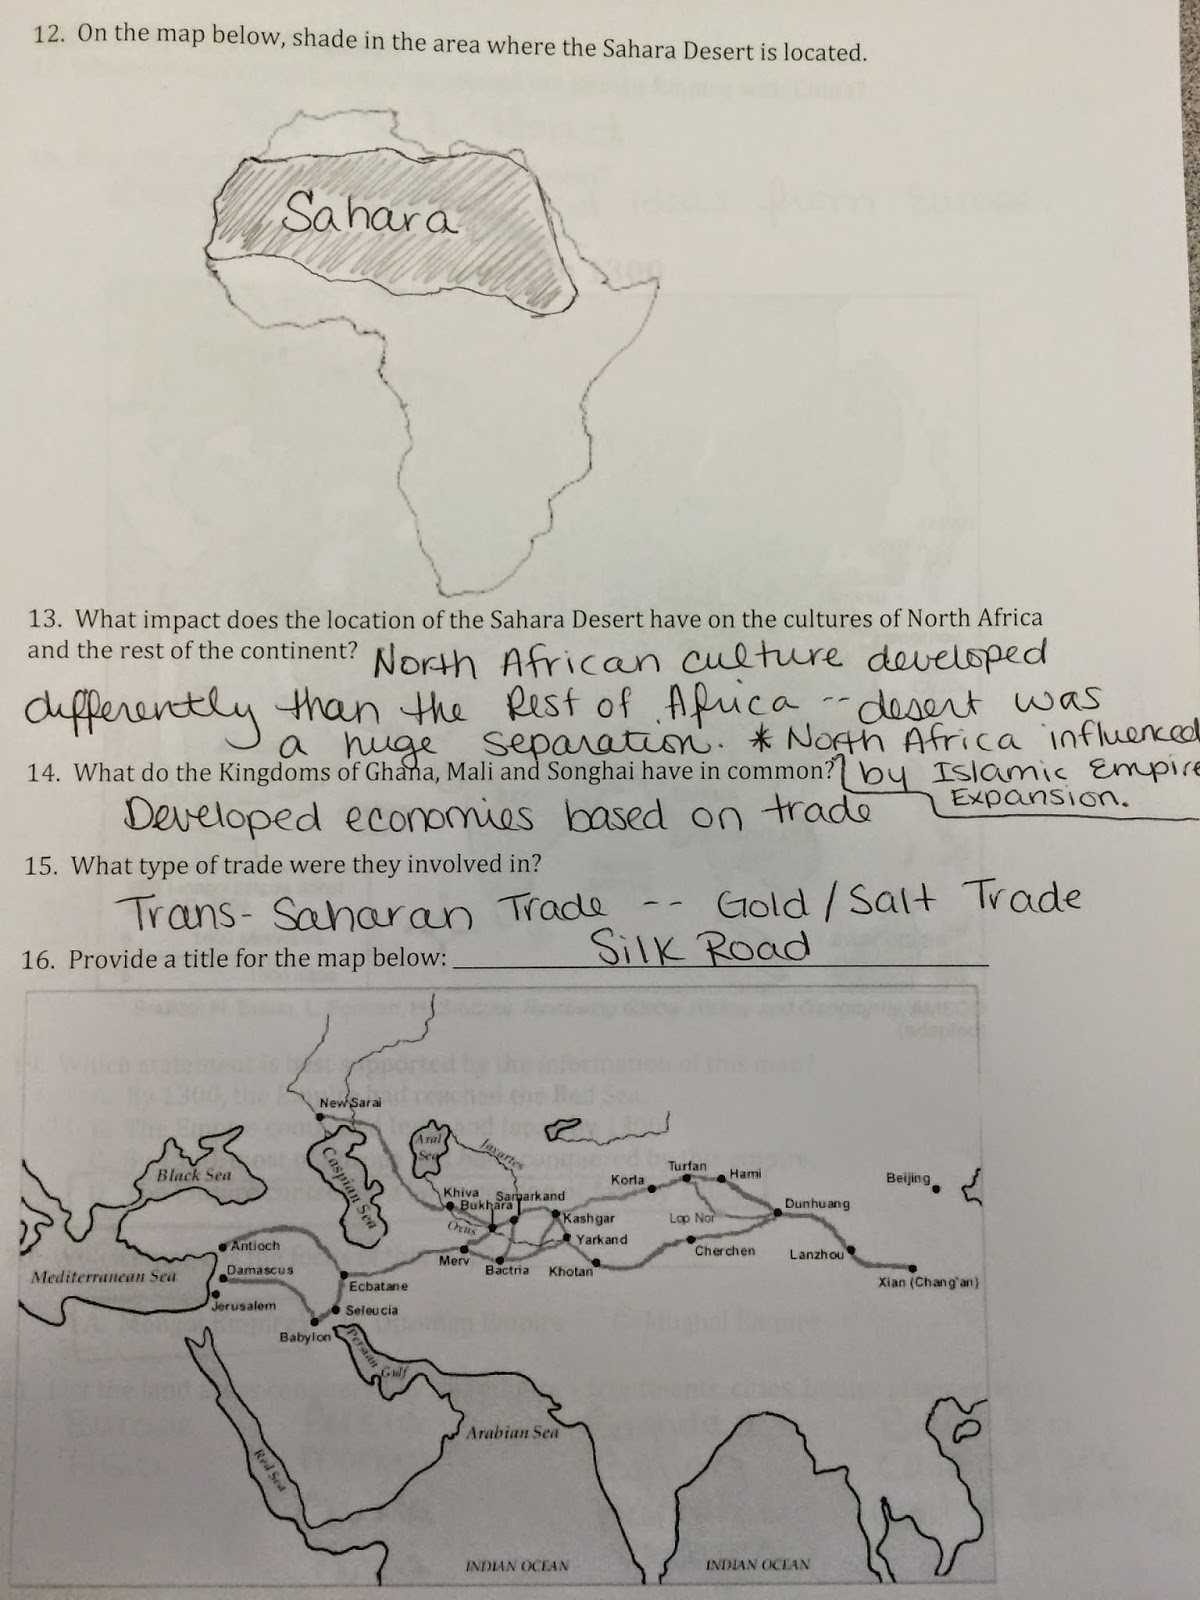 12. On the map below, shade in the area where the Sahara Desert is located.
Sahara
13. What impact does the location of the Sahara Desert have on the cultures of North Africa
and the rest of the continent? North African culture developed
differently than the Rest of Africa -- desert was
a huge separation. * North Africa influenced
14. What do the Kingdoms of Ghana, Mali and Songhai have in common? by Islamic Empire
Expansion.
Developed economies based on trade
15. What type of trade were they involved in?
Trans-Saharan Trade -- Gold / Salt Trade
16. Provide a title for the map below: Silk Road
New Sarai
Aral
Sea
Jaxartes
Black Sea
Caspian Sea
Turfan
Hami
Korla
Beijing
Khiva
Samarkand
Bukhara
Oxus
Kashgar
Lop Nor
Dunhuang
Yarkand
Antioch
Merv
Cherchen
Lanzhou
Mediterranean Sea
Damascus
Bactria
Khotan
Ecbatane
Xian (Chang'an)
Jerusalem
Seleucia
Babylon
Persian
Gulf
Arabian Sea
Red Sea
INDIAN OCEAN
INDIAN OCEAN